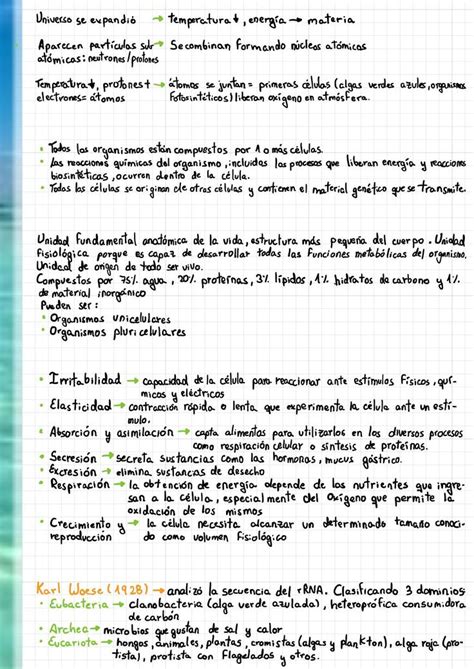 Universo se expandió → temperatura ↓, energía → materia
Aparecen partículas sub → Se combinan formando núcleos atómicos
atómicas: neutrones/protones
Temperatura ↓, protones + → átomos se juntan = primeras células (algas verdes azules, organismos
electrones = átomos fotosintéticos) liberan oxígeno en atmósfera.
• Todos los organismos están compuestos por 1 o más células.
• Las reacciones químicas del organismo, incluidas los procesos que liberan energía y reacciones
biosintéticas, ocurren dentro de la célula.
• Todas las células se originan de otras células y contienen el material genético que se transmite.
Unidad fundamental anatómica de la vida, estructura más pequeña del cuerpo. Unidad
fisiológica porque es capaz de desarrollar todas las funciones metabólicas del organismo.
Unidad de origen de todo ser vivo.
Compuestos por 75% agua, 20% proteínas, 3% lípidos, 1% hidratos de carbono y 1%
de material inorgánico
Pueden ser:
• Organismos unicelulares
• Organismos pluricelulares
• Irritabilidad → capacidad de la célula para reaccionar ante estímulos físicos, quí-
micos y eléctricos
• Elasticidad → contracción rápida o lenta que experimenta la célula ante un estí-
mulo.
• Absorción y asimilación → capta alimentos para utilizarlos en los diversos procesos
como respiración celular o síntesis de proteínas.
• Secresión → secreta sustancias como las hormonas, mucus gástrico.
• Excresión → elimina sustancias de desecho
• Respiración → la obtención de energía depende de los nutrientes que ingre-
san a la célula, especialmente del oxígeno que permite la
oxidación de los mismos
• Crecimiento y → la célula necesita alcanzar un determinado tamaño conoci-
reproducción do como volumen fisiológico
Karl Woese (1928) → analizó la secuencia del rRNA. Clasificando 3 dominios
• Eubacteria → cianobacteria (alga verde azulada), heteroprófica consumidora
de carbón
• Archea → microbios que gustan de sal y calor
• Eucariota → hongos, animales, plantas, cromistas (algas y plankton), alga roja (pro-
tista), protista con flagelados y otros.